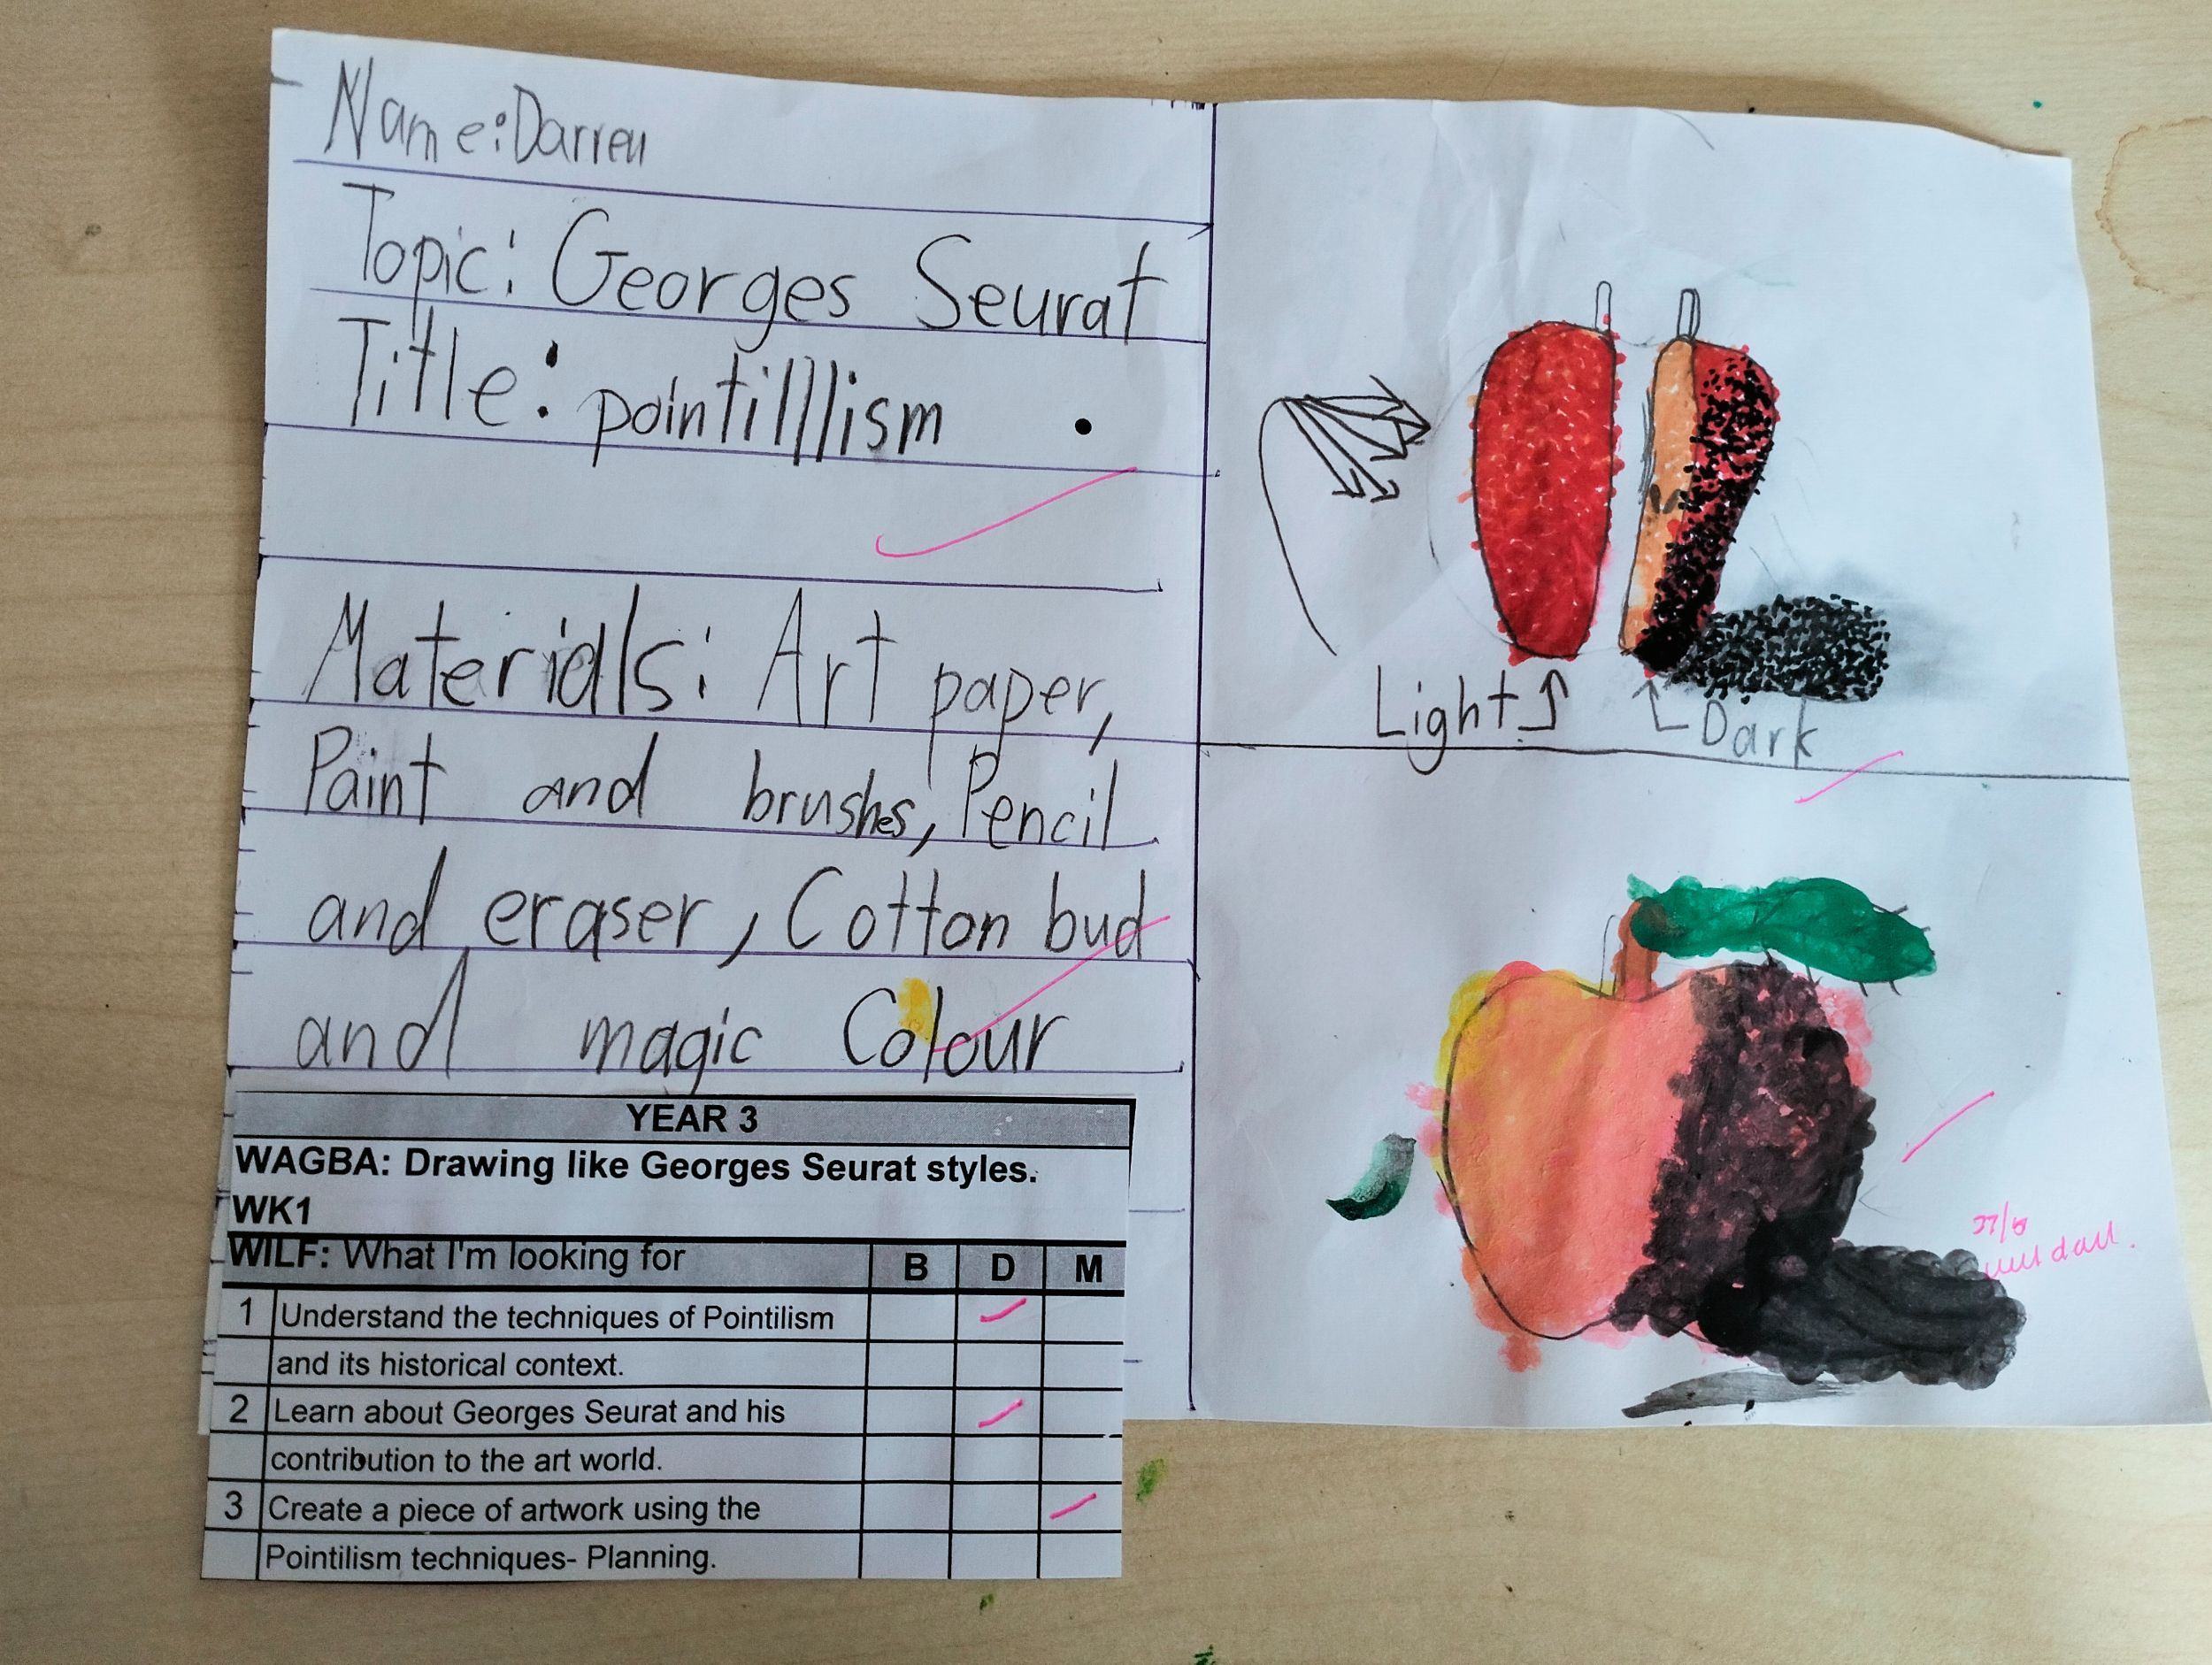 Name: Darren
Topic: Georges Seurat
Title: pointilllism
Materials: Art paper,
Paint and brushes, Pencil
and eraser, Cotton bud
and magic Colour
YEAR 3
WAGBA: Drawing like Georges Seurat styles.
WK1
WILF: What I'm looking for B D M
1 Understand the techniques of Pointilism
and its historical context.
2 Learn about Georges Seurat and his
contribution to the art world.
3 Create a piece of artwork using the
Pointilism techniques- Planning.
Light
Dark